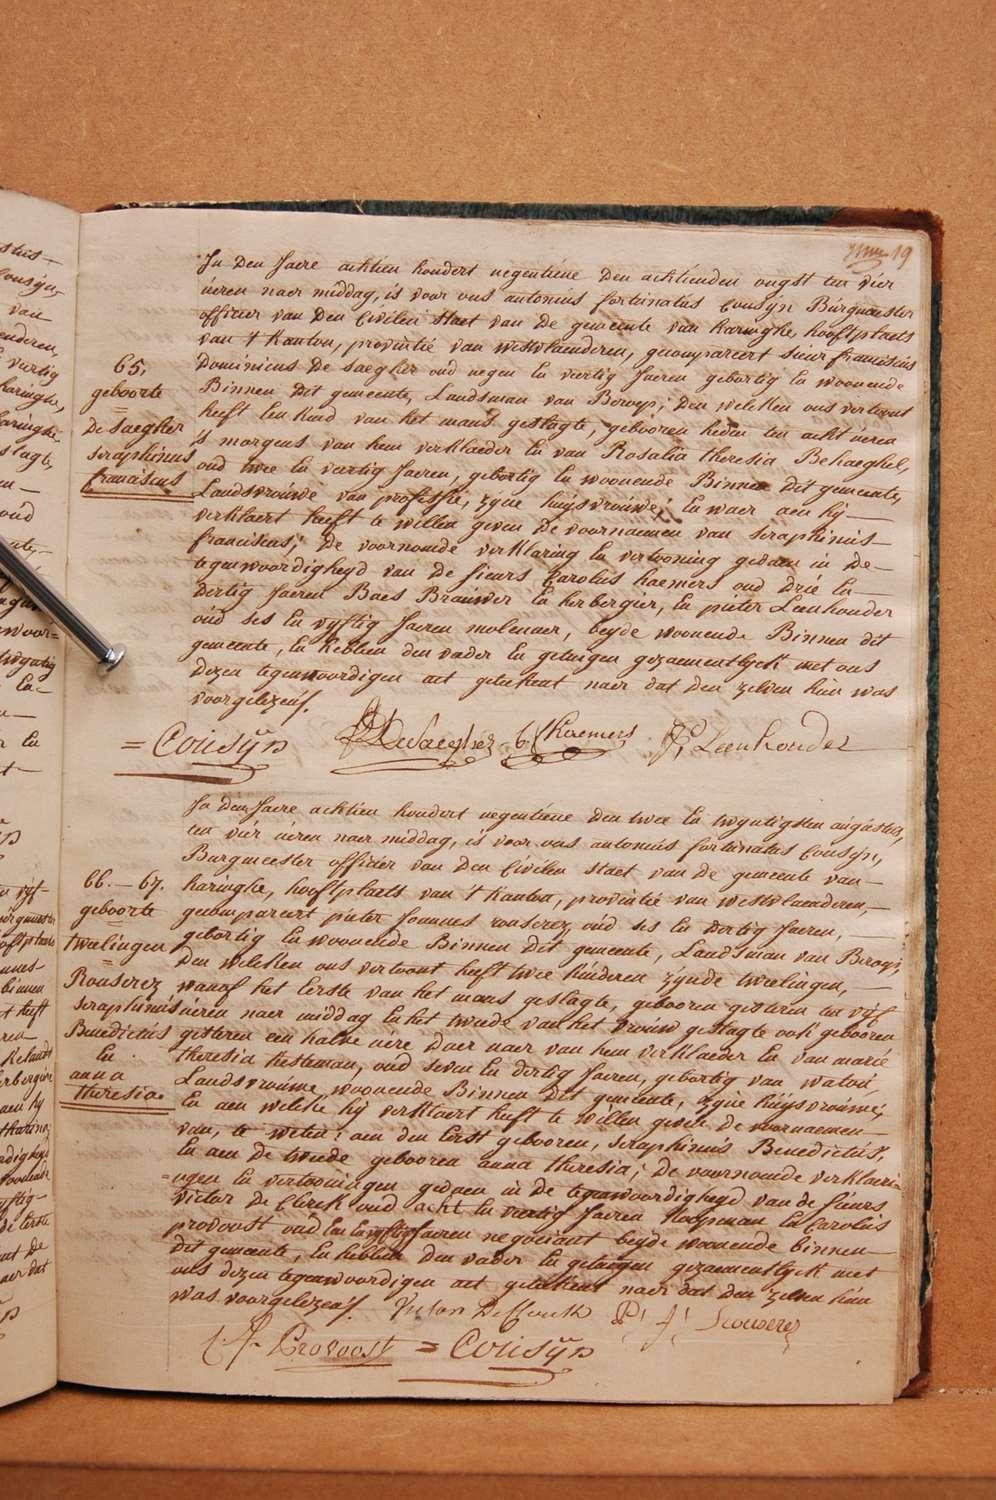 19
65.
geboorte
De Saegher
seraphinus
franciscus
In Den Jaere achtien hondert negentiene Den achtienden ougst ten vier
úeren naer middag, is voor ons antonius fortunatus Cousyn Bürgmeester
officier van Den Civilen Staet van De gemeente van haringhe, hooftplaets
van 't Kanton, provintie van westvlaenderen, gecompareert Sieur franciscus
Dominicus De Saegher oud negen en veertig Jaeren gebortig en woonende
Binnen Dit gemeente, Landsman van Beroep; Den welcken ons vertoont
heeft een kind van het mans geslagte, gebooren heden ten acht úeren
's morgens van hem verklaeder en van Rosalia theresia Behaeghel,
oud twee en veertig Jaeren, gebortig en woonende Binnen Dit gemeente,
Landsvrouwe van professie, zyne húysvrouwe; En waer aen hy
verklaert heeft te willen geven De voornaemen van seraphinus
franciscus; De voornoemde verklaring en vertooning gedaen in De
tegenwoordigheyd van De sieurs Carolus haemers oud Drie en
dertig Jaeren Baes Brouwer en herbergier, en pieter Leenhouder
oúd ses en vyftig Jaeren molenaer, beyde woonende Binnen dit
gemeente, en hebben den vader en getuigen gezaementlyck met ons
dezen tegenwoordigen act geteekent naer dat den zelven hún was
voorgelezen.
= Cousÿn DeSaegher C. Haemers P. Leenhouder
66. – 67.
geboorte
tweelingen
=
Rouserez
seraphinus
Benedictus
En
anna
theresia
In den Jaere achtien hondert negentiene den twee en twyntigsten augustus,
ten vier úeren naer middag, is voor ons antonius fortunatus Cousyn,
Burgmeester officier van den Civilen Staet van de gemeente van
haringhe, hooftplaets van 't Kanton, provintie van westvlaenderen,
gecompareert pieter Joannes rouserez, oúd ses en Dertig Jaeren,
gebortig en woonende Binnen Dit gemeente, Landsman van Beroep,
Den welcken ons vertoont heeft twee kinderen zynde tweelingen,
wanof het Eerste van het mans geslagte, gebooren gisteren ten vyf
úeren naer middag en het tweede van het vroúw geslagte ook gebooren
gisteren een halve uere daer naer van hem verklaeder en van marie
theresia Kesteman, oúd seven en dertig Jaeren, gebortig van watou,
Landsvrouwe, woonende Binnen Dit gemeente, zyne húysvrouwe;
En aen welcke hy verklaert heeft te willen geven de voornaemen
van, te weten: aen den Eerst gebooren, seraphinus Benedictus,
En aen de tweede gebooren anna theresia; De voornoemde verklari-
=ngen en vertooningen gedaen in de tegenwoordigheyd van de sieurs
victor de Clerck oud acht en veertig Jaeren Koopman en Carolus
provoost oud en vyftig Jaeren negociant beyde woonende binnen
Dit gemeente, En hebben den vader en getuigen gezaementlyck met
ons dezen tegenwoordigen act geteekent naer dat den zelven hún
was voorgelezen. Victor De Clerck P: J: Rouserez
C F Provoost = Cousÿn